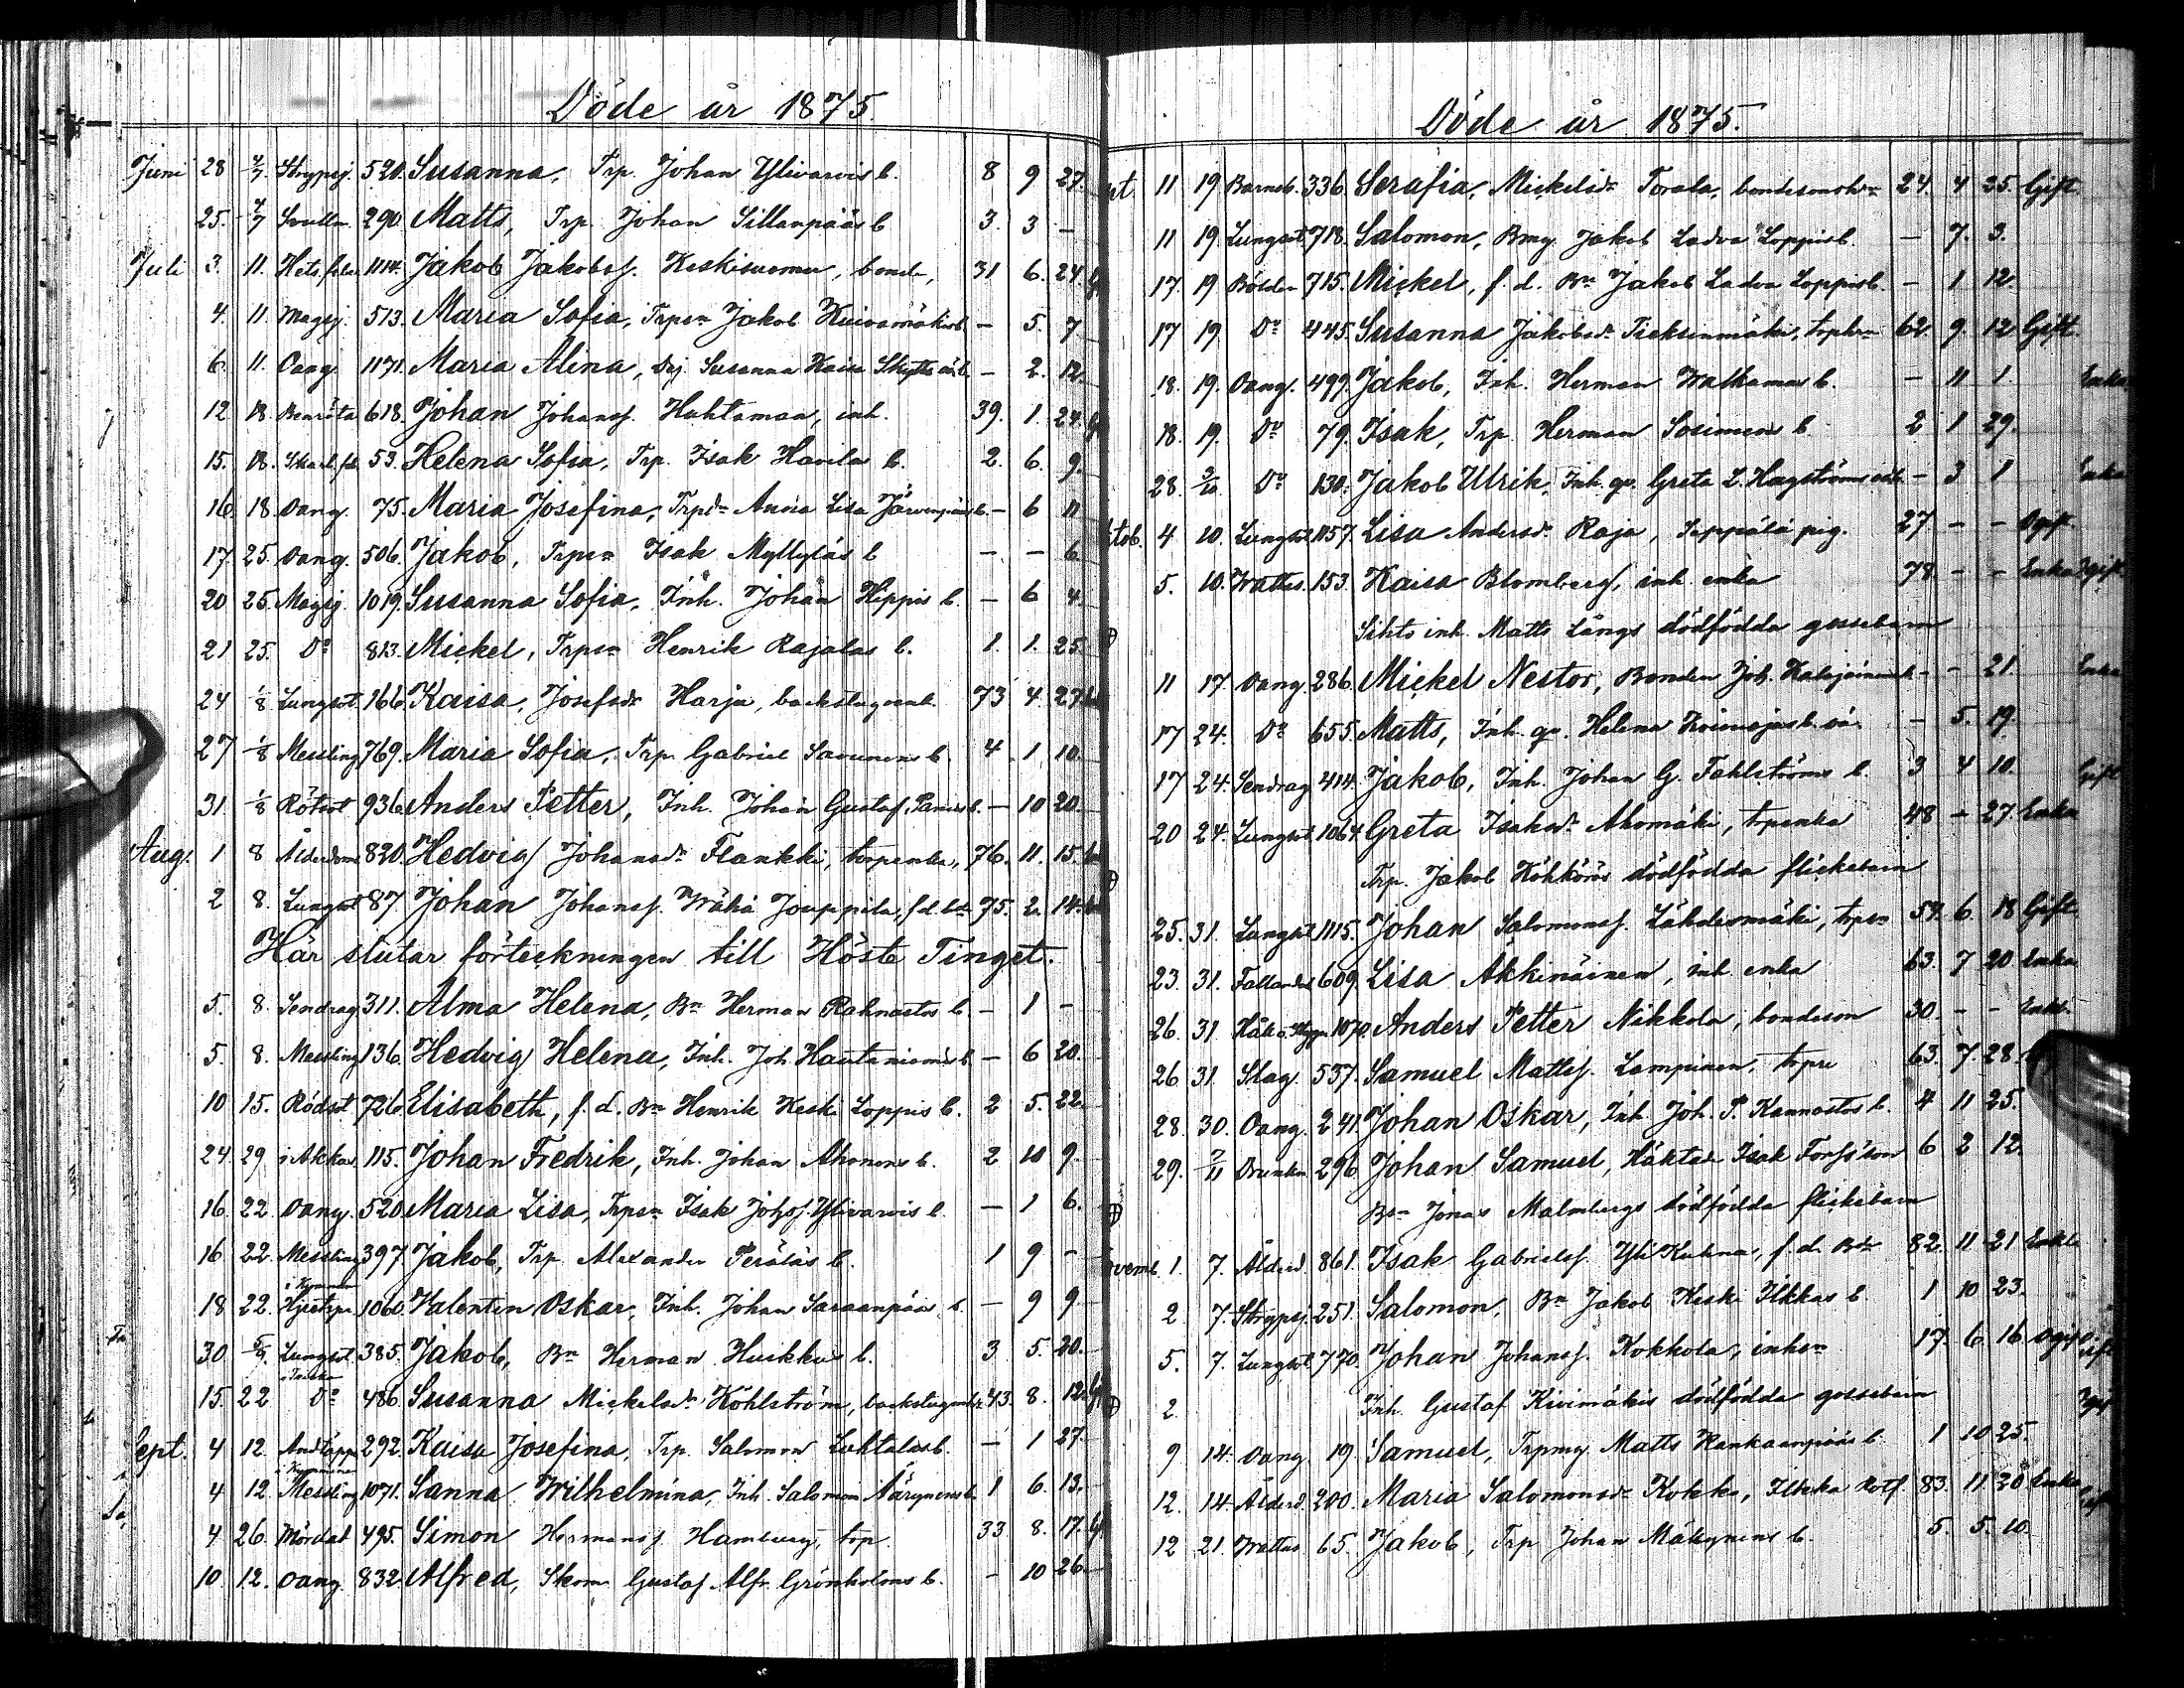 Döde år 1875.
Juni 28 4/7 Strypsj. 520. Susanna, Trp. Johan Ylivarvis b. 8 9 27.
25. 4/7 290. Matts, Trp. Johan Sillanpääs b 3. 3 -
Juli 3. 11. Hets. feber 1114. Jakob Jakobss. Keskisuomu, bonde, 31 6. 24.
4. 11. Magsj. 513. Maria Sofia, Trpsn Jakob b. - 5. 7
6. 11. Oang. 1171. Maria Alina, Susanna Kaisa Skytts b. - 2. 12.
12. 18. 618. Johan Johanss. Huhtamaa, inh. 39. 1. 24.
15. 18. Skarl. fb. 53. Helena Sofia, Trp. Isak Havilas b. 2. 6. 9.
16. 18. Oang. 75. Maria Josefina, Trpdr Anna Lisa b. - 6 11
17. 25. Oang. 506. Jakob, Trpsn Isak Myllyläs b - - 6
20 25. Magsj. 1019. Susanna Sofia, Inh. Johan Hippis b. - 6 4.
21 25. Do 813. Mickel, Trpsn Henrik Rajalas b. 1. 1. 25.
24 1/8 Lungsot. 166. Kaisa, Josefsdr Harju, 73 4. 27.
27 1/8 Messling 769. Maria Sofia, Trp. Gabriel Savunens b. 4 1 10.
31. 1/8 Rötsot 936. Anders Petter, Inh. Johan Gustaf b. - 10 20.
Aug. 1 8 Ålderdom 820. Hedvig Johansdr Flankki, torpenka, 76. 11. 15.
2 8. Lungsot 87. Johan Johanss. Wähä Jouppila, f.d. 75. 2. 14.
Här slutar förteckningen till Höste Tinget.
5. 8. Sendrag 311. Alma Helena, Bn Herman Rahnastos b. - 1 -
5. 8. Messling 136. Hedvig Helena, Inh. Joh. b. - 6 20.
10 15. Rödsot 726. Elisabeth, f.d. Bn Henrik Keski Loppis b. 2 5. 22.
24. 29 115. Johan Fredrik, Inh. Johan Ahonens b. 2 10 9.
16. 22. Oang. 520. Maria Lisa, Trpsn Isak Johss. Ylivarvis b. - 1 6.
16 22. Messling 397. Jakob, Trp. Alexander Peräläs b. 1 9 -
18 22. 1060. Valentin Oskar, Inh. Johan b. - 9 9
30. 5/9. Lungsot. 385. Jakob, Bn Herman Huikkus b. 3 5. 20.
15. 22 Do 486. Susanna Mickelsdr Köhlström, 43. 8. 12.
Sept. 4 12. Andtäppa 292. Kaisa Josefina, Trp. Salomon Luhtalas b. - 1 27.
4 12. Messling 1071. Sanna Wilhelmina, Inh. Salomon b. 1 6. 13.
4 26. Mördad 495. Simon Hermanss. Hamburg, trp. 33. 8. 17.
10. 12. Oang. 832. Alfred, Skom. Gustaf Alfr. Grönholms b. - 10 26.
Döde år 1875.
pt. 11 19. Barnsb. 336. Serafia, Mickelsdr Torala, 24. 4 25. Gift.
11 19. Lungsot. 718. Salomon, Bmg. Jakob Ladva Loppis b. - 7. 3.
17. 19 Bölder 715. Mickel, f. d. Bn Jakob Ladva Loppis b. - 1 12.
17 19. Do 445. Susanna Jakobsdr 62. 9. 12 Gift.
18. 19. Oang. 499. Jakob, Inh. Herman b. - 11 1.
18. 19. Do 79. Isak, Trp. Herman Sosimens b. 2 1 29.
28. 2/10. Do 130. Jakob Ulrik, Inh. qv. Greta L. Hagströms - 3 1
4 10. Lungsot 1157. Lisa Andersdr Raja, pig. 27 - - Ogift.
5. 10. Wattus. 153. Kaisa Blomberg, inh. enka 78 - - Enka
inh. Matts Långs dödfödda gossebarn
11 17. Oang. 286. Mickel Nestor, Bonden Joh. - - 21.
17 24. Do 655. Matts, Inh. qv. Helena - 5. 19.
17 24. Sendrag 414. Jakob, Inh. Johan G. Fahlströms b. 3 4 10.
20 24. Lungsot 1064. Greta Isaksdr Ahomäki, trpenka 48 - 27. Enka
Trp. Jakob Köhkörös dödfödda flickebarn
25. 31. Lungsot 1115. Johan Salomonss. Lähdesmäki, trpsn 59. 6. 18 Gift.
23. 31. 609. Lisa Akkinäinen, inh. enka 63. 7 20 Enka
26. 31. 1070. Anders Petter Nikkola, bondeson 30. - - Enkl.
26. 31. Slag. 537. Samuel Mattss. Lampinen, 63. 7. 28.
28. 30. Oang. 241. Johan Oskar, Inh. Joh. P. Kannastos b. 4 11 25.
29. 7/11 Drunkn 296. Johan Samuel, Häktade Isak son 6 2 12.
Bsn Jonas Malmbergs dödfödda flickebarn
vemb. 1. 7. Ålderd. 861. Isak Gabrielss. Yli Kuhna, f. d. 82. 11 21 Enkl.
2 7. Strypsj. 251. Salomon, Bn Jakob Keski Ilkkas b. 1 10 23.
5. 7. Lungsot. 770. Johan Johanss. Kokkola, inhsn 17. 6. 16. Ogift
2. Inh. Gustaf Kivimäkis dödfödda gossebarn
9 14. Oang 19. Samuel, Trpmg. Matts b. 1 10 25.
12. 14. Ålderd. 200. Maria Salomonsdr Kokko, Ilkka Rotf. 83. 11. 20 Enka
12 21. Wattus. 65. Jakob, Trp. Johan Mäkynens b. 5. 5. 10.